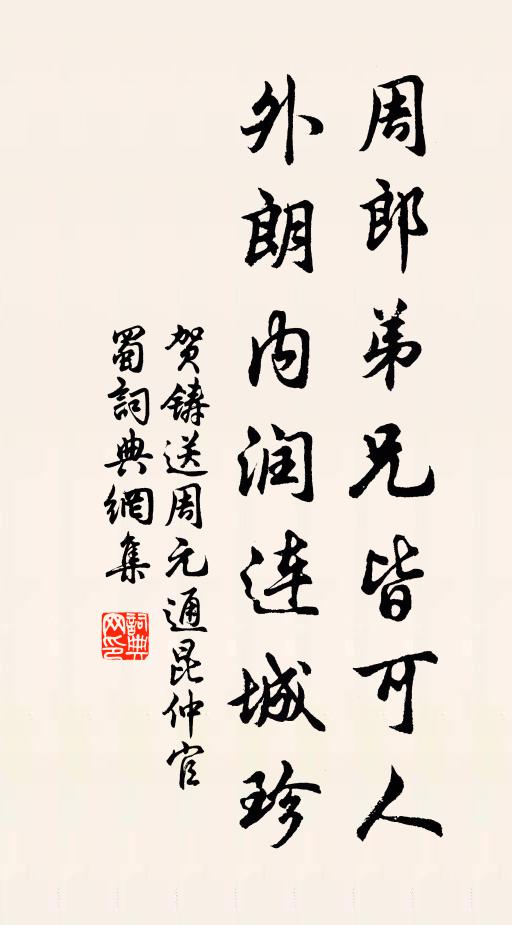 周郎弟兄皆可人
外朗内润连城珍
贺鑄送周元通昆仲官
蜀詞典網集
詞典网印